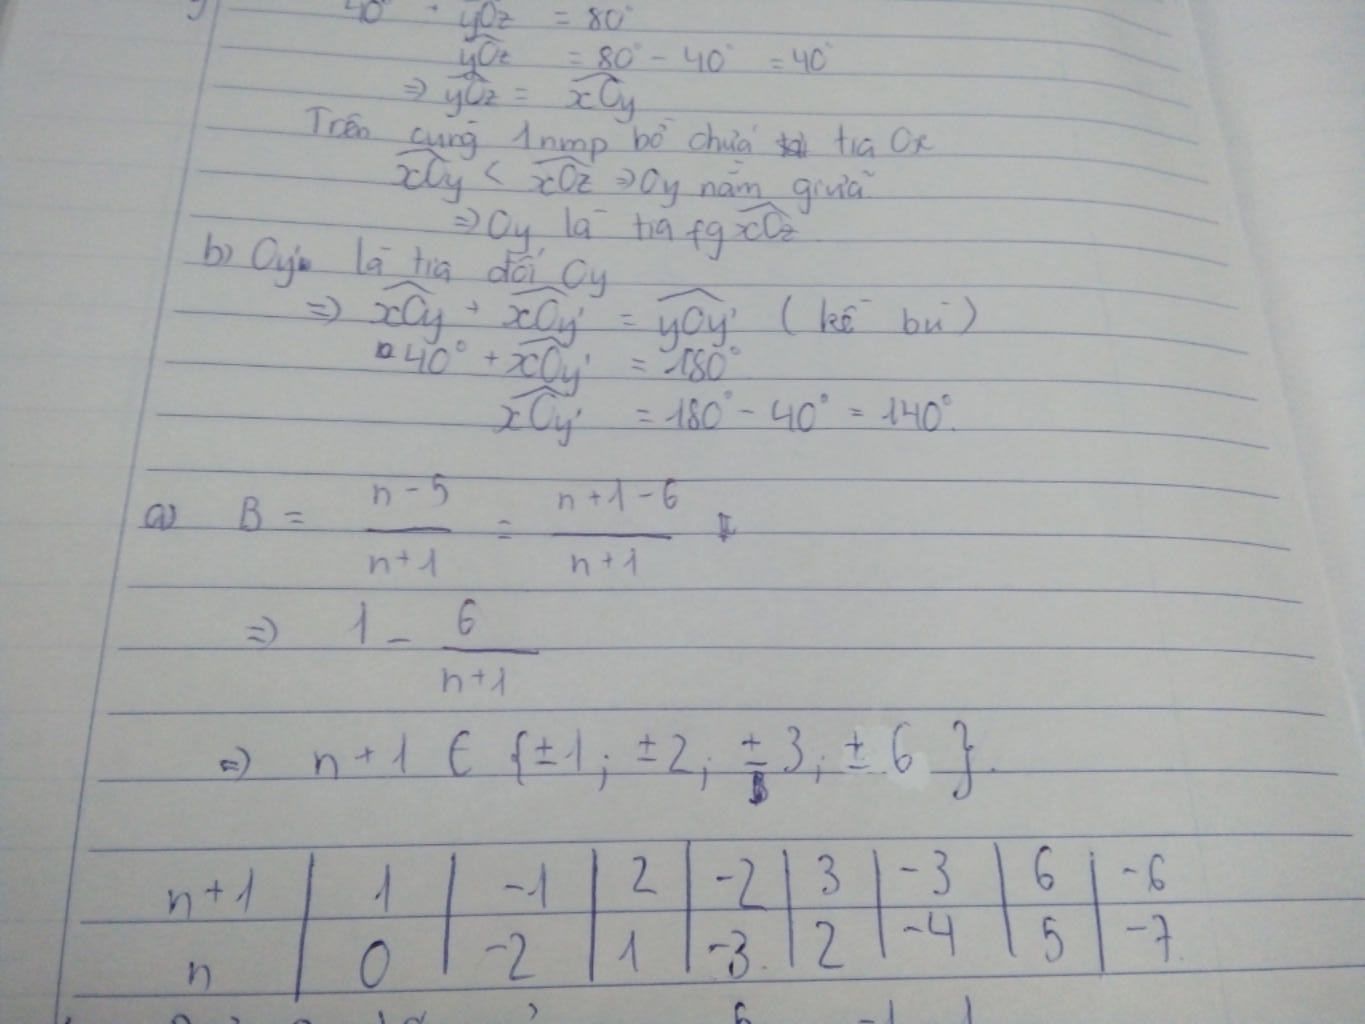 40° + yOz = 80°
yOz = 80° - 40° = 40°
⇒ yOz = xOy
Trên cùng 1 nmp bờ chứa tia Ox
xOy < xOz ⇒ Oy nằm giữa
⇒ Oy là tia fg xOz
b) Oy' là tia đối Oy
⇒ xOy + xOy' = yOy' (kề bù)
40° + xOy' = 180°
xOy' = 180° - 40° = 140°.
a) B = (n-5)/(n+1) = (n+1-6)/(n+1)
⇒ 1 - 6/(n+1)
⇒ n+1 ∈ {±1; ±2; ±3; ±6}.
n+1 | 1 | -1 | 2 | -2 | 3 | -3 | 6 | -6
n | 0 | -2 | 1 | -3 | 2 | -4 | 5 | -7